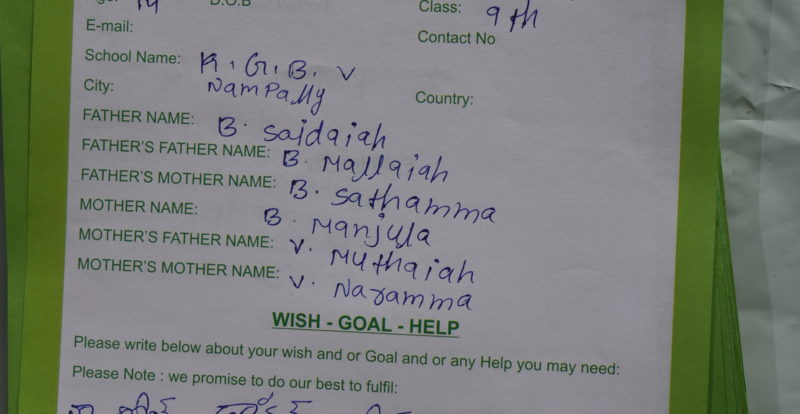 Age: 14 D.O.B Class: 9th
E-mail: Contact No
School Name: K. G. B. V
City: Nampally Country:
FATHER NAME: B. Saidaiah
FATHER'S FATHER NAME: B. Mallaiah
FATHER'S MOTHER NAME: B. Sathamma
MOTHER NAME: B. Manjula
MOTHER'S FATHER NAME: V. Muthaiah
MOTHER'S MOTHER NAME: V. Naramma
WISH - GOAL - HELP
Please write below about your wish and or Goal and or any Help you may need:
Please Note : we promise to do our best to fulfil: